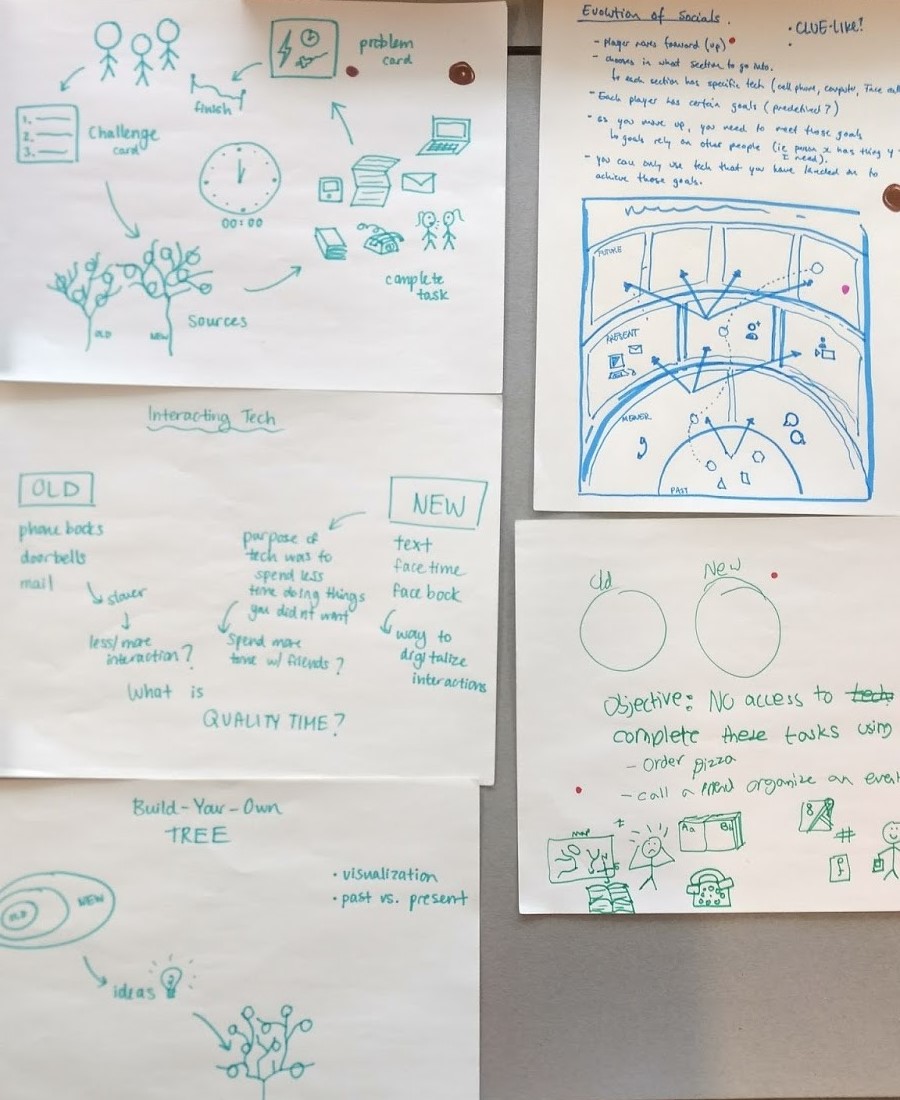 problem
card
finish
1.
2.
3.
Challenge
card
00:00
complete
task
OLD
NEW
Sources
Interacting Tech
OLD
phone books
doorbells
mail
slower
less/more
interaction?
purpose of
tech was to
spend less
time doing things
you didn't want
Spend more
time w/ friends?
NEW
text
facetime
facebook
way to
digitalize
interactions
What is
QUALITY TIME?
Build-Your-Own
TREE
• visualization
• past vs. present
OLD
NEW
ideas
Evolution of Socials.
• CLUE-LIKE!
•
- Player moves forward (up)
- chooses in what section to go into.
↳ each section has specific tech (cell phone, computer,
- Each player has certain goals (predefined?)
- as you move up, you need to meet those goals
↳ goals rely on other people (ie. person x has thing y
I need).
- you can only use tech that you have landed on to
achieve those goals.
FUTURE
PRESENT
NEWER
PAST
Old
New
Objective: No access to tech
complete these tasks using
- Order pizza
- call a friend organize an event
map
Aa
#